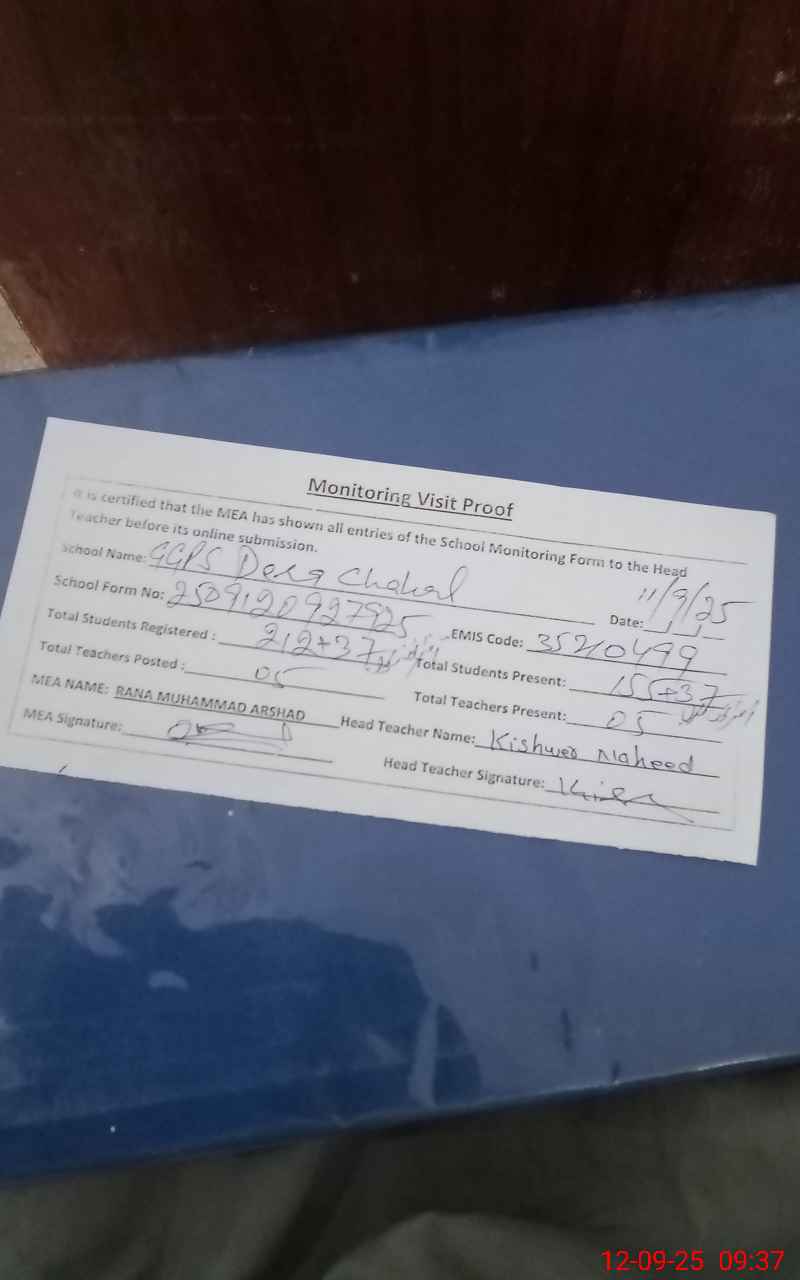 Monitoring Visit Proof
It is certified that the MEA has shown all entries of the School Monitoring Form to the Head
Teacher before its online submission.
School Name: GGPS Dera Chahal Date: 11/9/25
School Form No: 2509120927925 EMIS Code: 35210499
Total Students Registered : 212+37 Total Students Present: 155+37
Total Teachers Posted : 05 Total Teachers Present: 05
MEA NAME: RANA MUHAMMAD ARSHAD Head Teacher Name: Kishwer Naheed
MEA Signature: Head Teacher Signature:
12-09-25 09:37